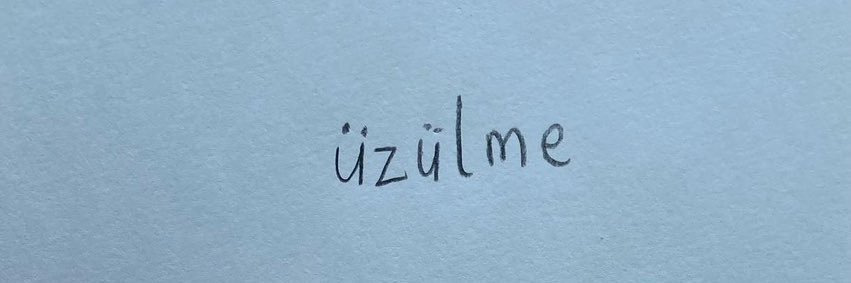 üzülme